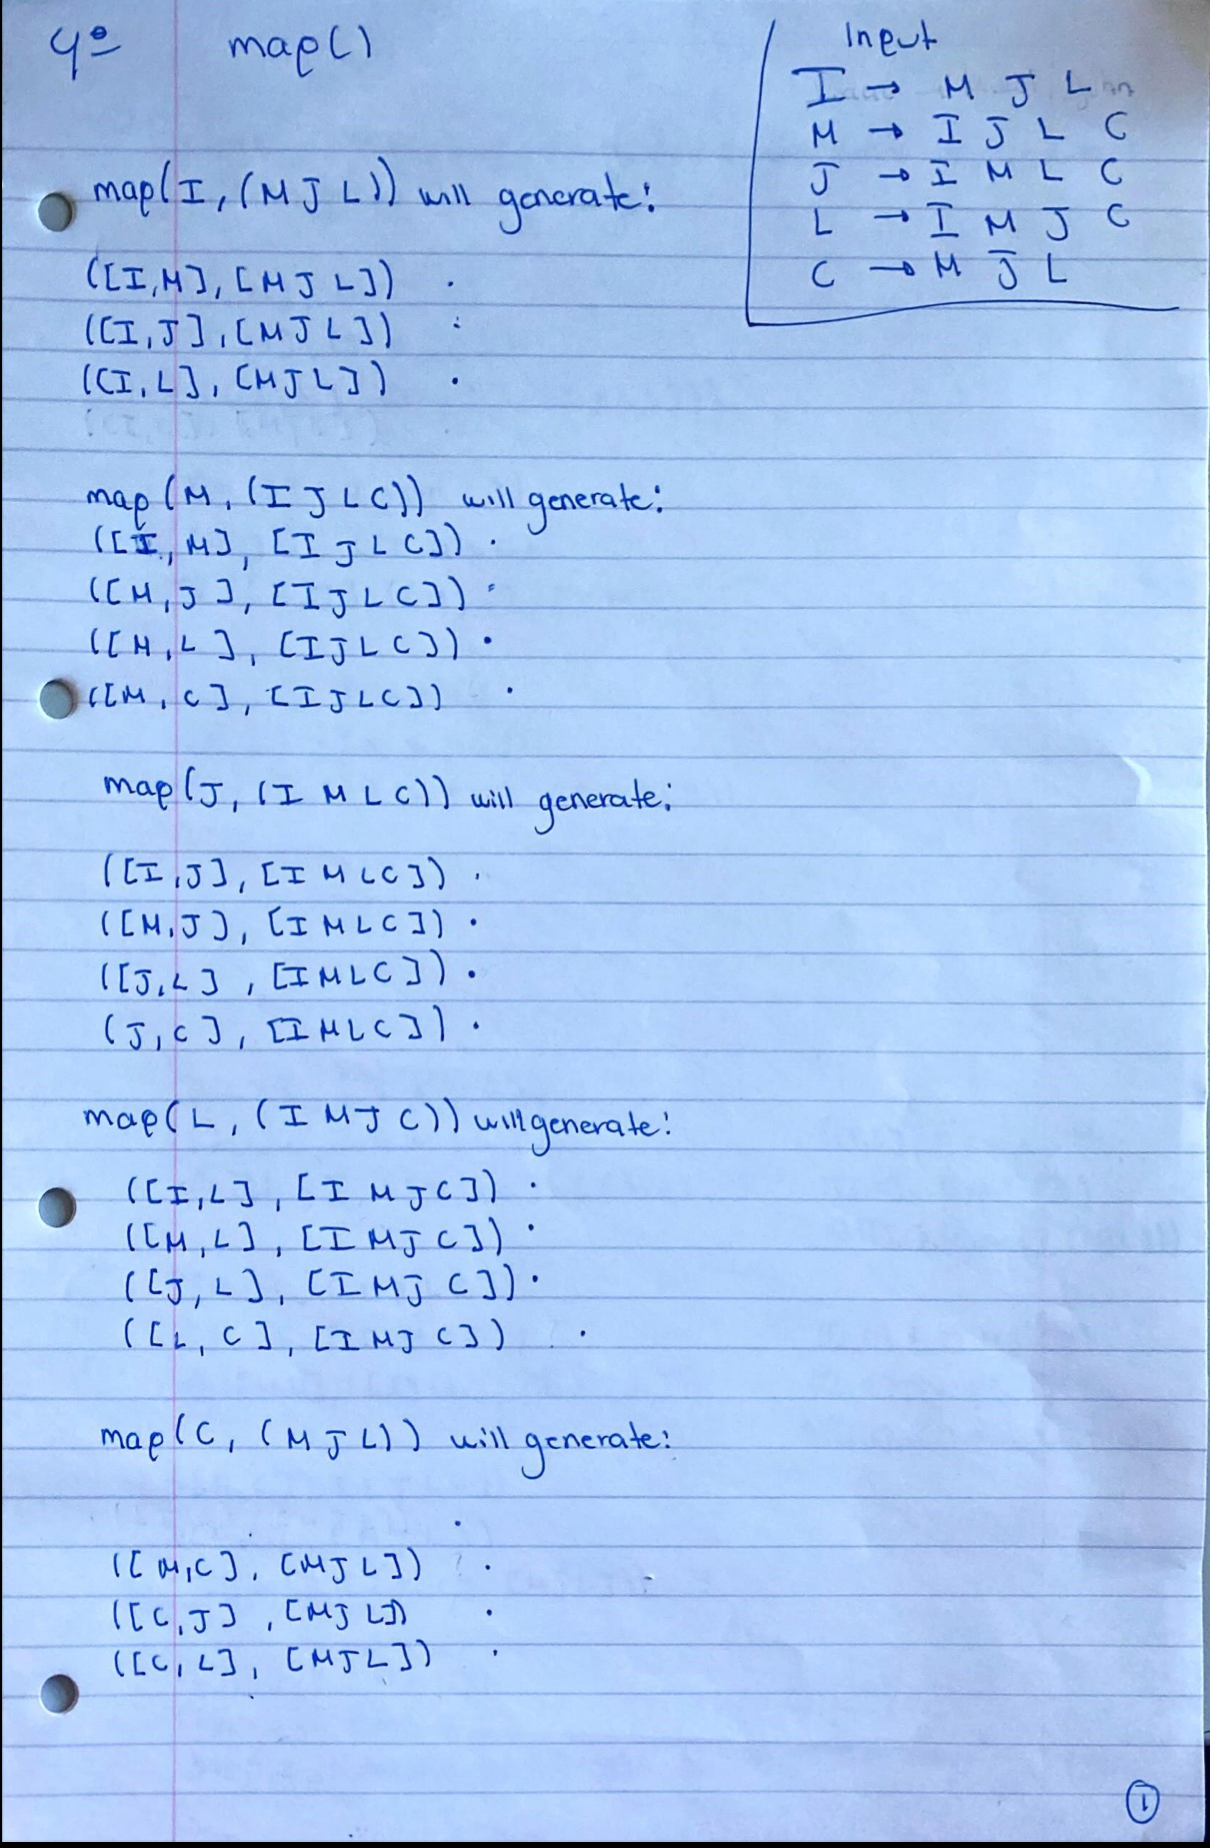 4º map()
Input
I → M J L
M → I J L C
J → I M L C
L → I M J C
C → M J L
map(I, (M J L)) will generate:
([I,M], [M J L]) .
([I,J], [M J L]) :
([I,L], [M J L]) .
map (M, (I J L C)) will generate:
([I, M], [I J L C]) .
([M, J], [I J L C]) .
([M, L], [I J L C]) .
([M, C], [I J L C]) .
map (J, (I M L C)) will generate:
([I,J], [I M L C]) .
([M,J], [I M L C]) .
([J,L] , [I M L C]) .
(J,C], [I M L C]) .
map(L, (I M J C)) will generate:
([I,L] , [I M J C]) .
([M,L], [I M J C]) .
([J,L], [I M J C]) .
([L, C], [I M J C]) .
map(C, (M J L)) will generate:
([M,C], [M J L]) .
([C,J] , [M J L]) .
([C,L], [M J L]) .
1